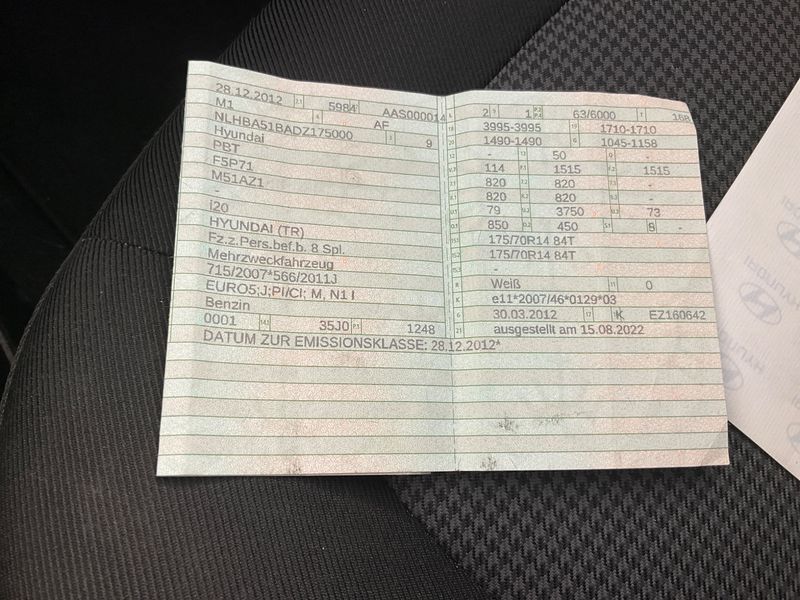 28.12.2012 2.1 5984 AAS000014
M1 AF
NLHBA51BADZ175000 3 9
Hyundai
PBT
F5P71
M51AZ1
-
i20
HYUNDAI (TR)
Fz.z.Pers.bef.b. 8 Spl.
Mehrzweckfahrzeug
715/2007*566/2011J
EURO5;J;PI/CI; M, N1 I
Benzin
0001 14.1 35J0 P.1 1248
DATUM ZUR EMISSIONKLASSE: 28.12.2012*
L 2 9 1 P.2 P.4 63/6000 T 168
18 3995-3995 19 1710-1710
20 1490-1490 G 1045-1158
12 - 13 50 Q -
V.7 114 F.1 1515 F.2 1515
7.1 820 7.2 820 7.3 -
8.1 820 8.2 820 8.3 -
U.1 79 U.2 3750 U.3 73
O.1 850 O.2 450 S.1 5 S.2 -
15.1 175/70R14 84T
15.2 175/70R14 84T
15.3 -
R Weiß 11 0
K e11*2007/46*0129*03
6 30.03.2012 17 K EZ160642
21 ausgestellt am 15.08.2022
HYUNDAI